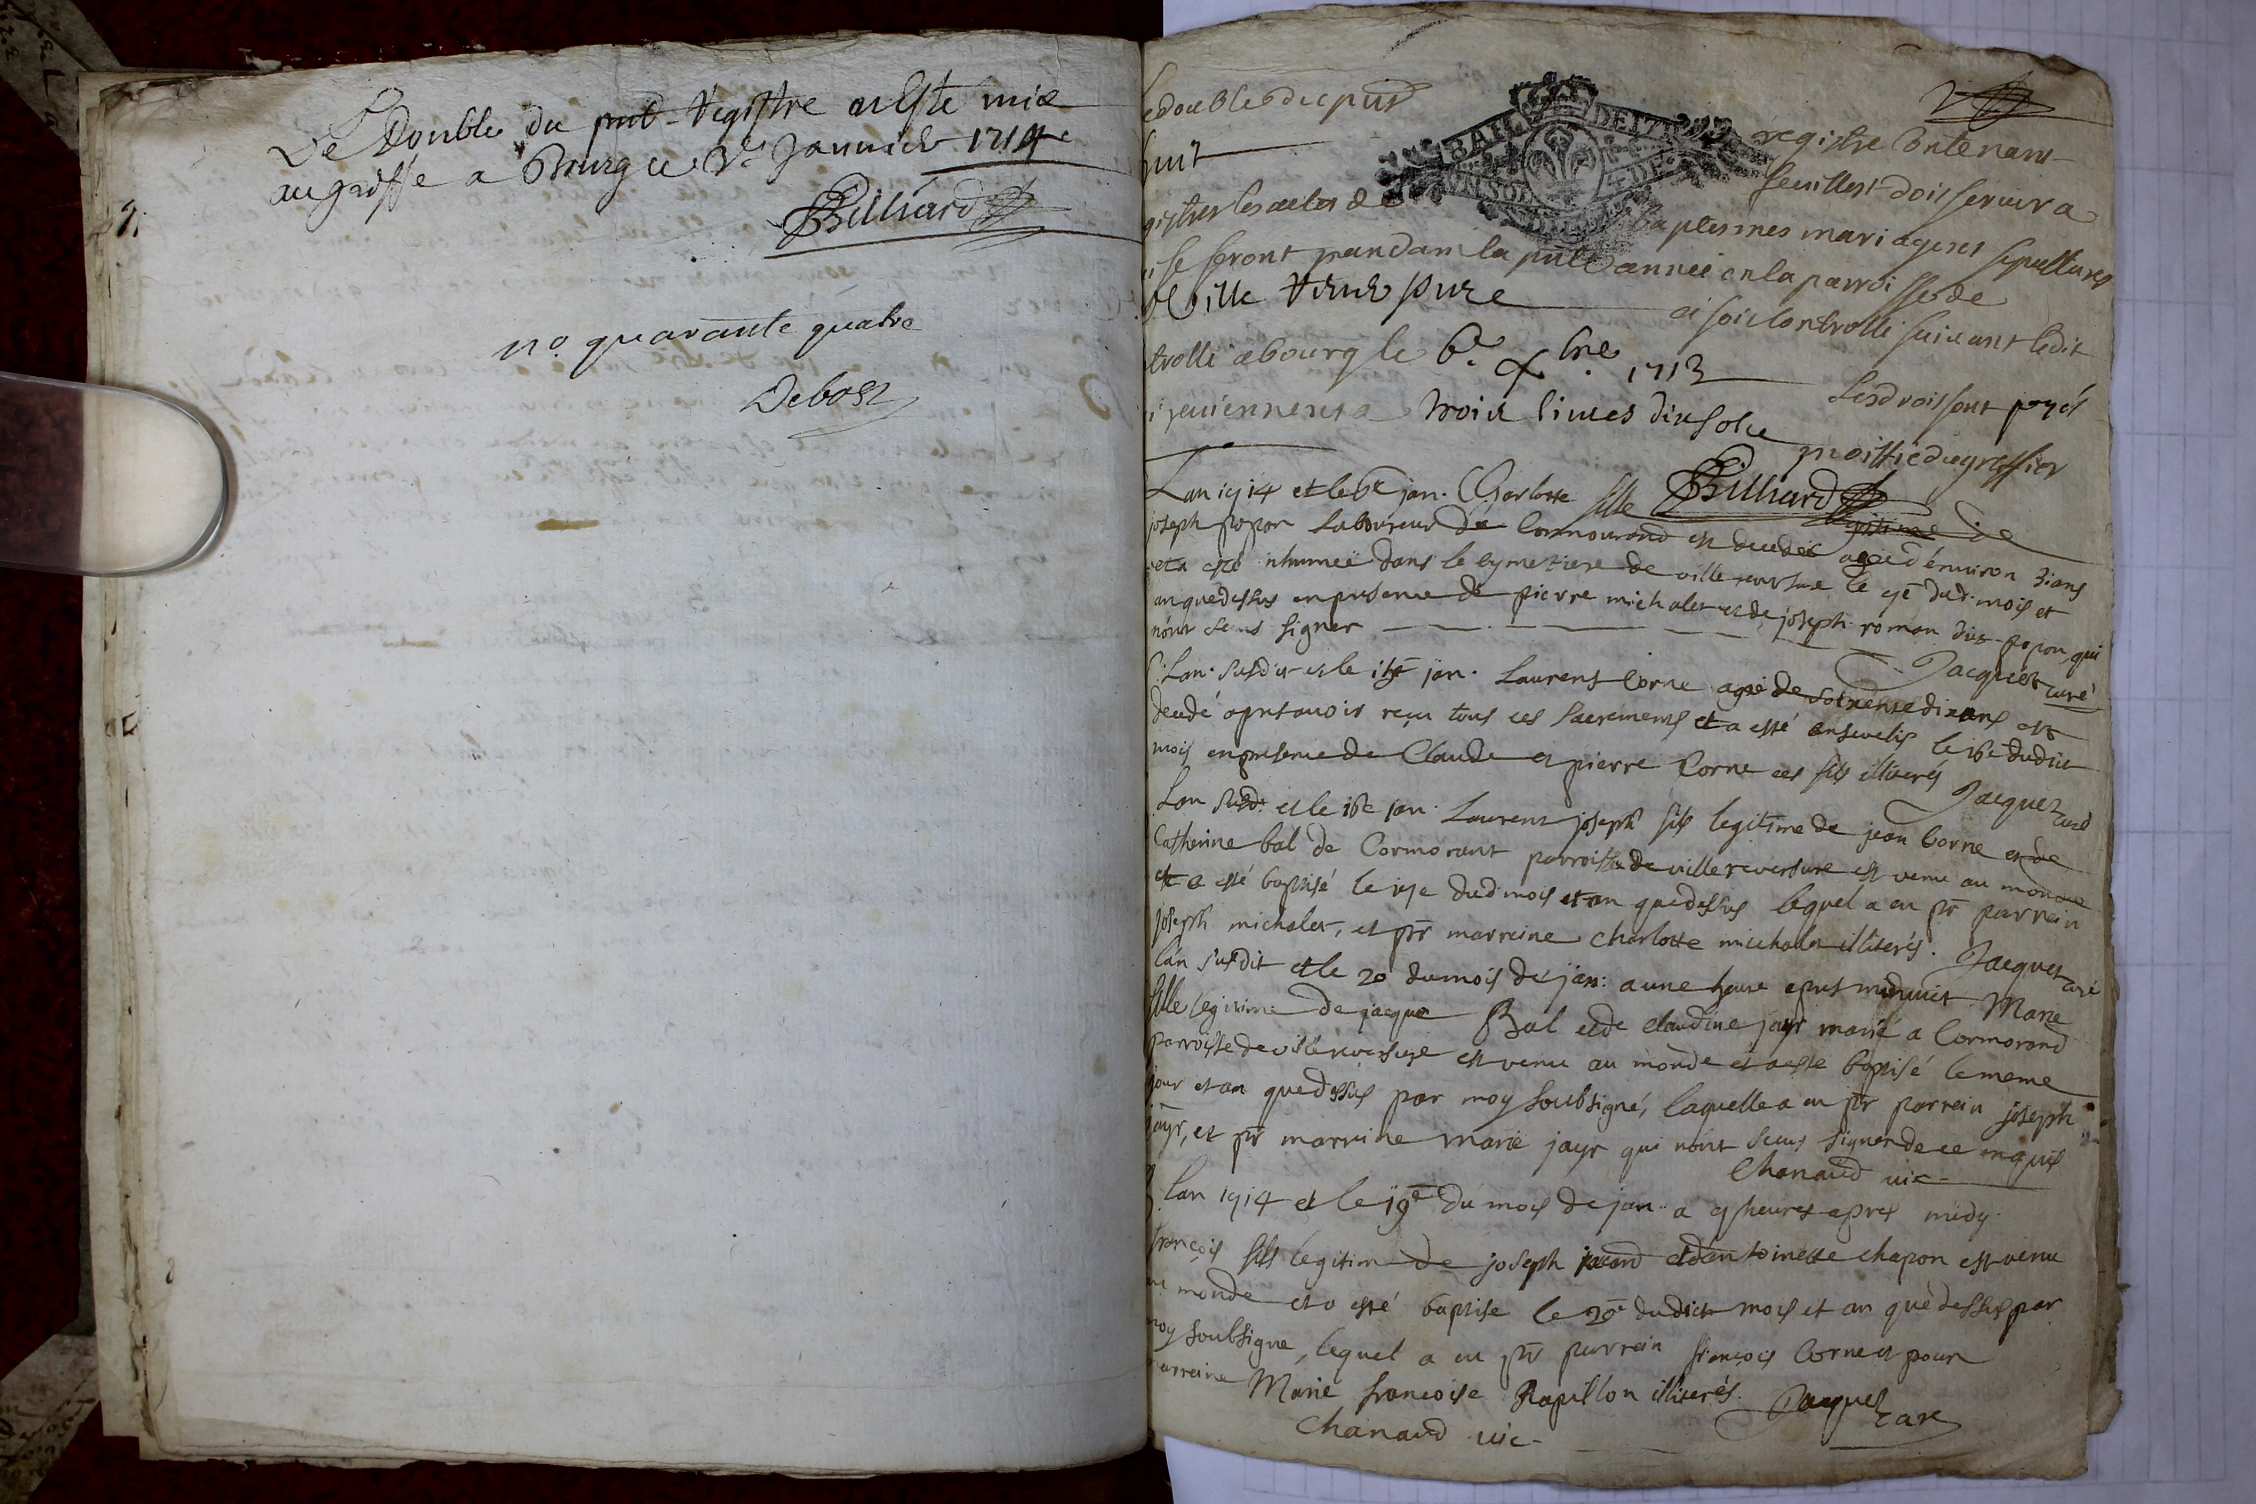 Le Double du pnt Registre a este mis
au greffe a Bourg ce Janvier 1714
Billiard
no. quarante quatre
Debost
Le double du pnt
registre Contenant
huit
feuillest doit servir a
gistrer les actes de
baptesmes mariages et sepultures
i se feront pandant la pnte année en la parroisse de
Ville Reuersure
et soit controllé suivant ledit
trollé a bourg le 6e xbre 1713
Les droit sont payés
i reviennent a trois livres dix sols
moittié du greffier
Billiard
Lan 1714 et le 6e jan. Charlotte fille legitime de
joseph popon laboureur de Cormourand est decedée agée d'environ 3 ans
et a esté inhumeé dans le cymetiere de villereversure le 7e dud. mois et
an quedessus en presence de pierre michalet et de joseph roman dit popon, qui
n'ont sceus signer
Jacquet curé
Lan susdit et le jan. Laurent Corne agé de soixente dix ans est
decedé apres avoir reçu tous ces sacrements et a esté ensevelis le 16e dudict
mois en presence de Claude et pierre Corne ces fils illiterés Jacquet curé
Lan susd. et le 16e jan. Laurent joseph fils legitime de jean Corne et de
Catherine bal de Cormorant parroisse de villereversure est venu au monde
et a esté baptisé le 17e dud. mois et an quedessus lequel a eu pr parrein
joseph michalet, et pr marreine charlotte michalet illiterés. Jacquet curé
lan susdit et le 20 du mois de jan: a une heure apres midnuit Marie
fille legitime de jacque Bal et de claudine jayr marié a Cormorand
parroisse de villereversure est venu au monde et a este baptisé le meme
jour et an quedessus par moy soubsigné, laquelle a eu pr parrein joseph
jayr, et pr marreine marie jayr qui n'ont sceus signer de ce enquis
Chanaud vic-
Lan 1714 et le 19e du mois de jan. a 9 heures apres midy
françois fils legitim de joseph et d'antoinette chapon est venu
au monde et a esté baptise le 20e dudict mois et an que dessus par
moy soubsigne, lequel a eu pr parrein françois Corne et pour
marreine Marie françoise Papillon illiterés. Jacquet curé
Chanaud vic-